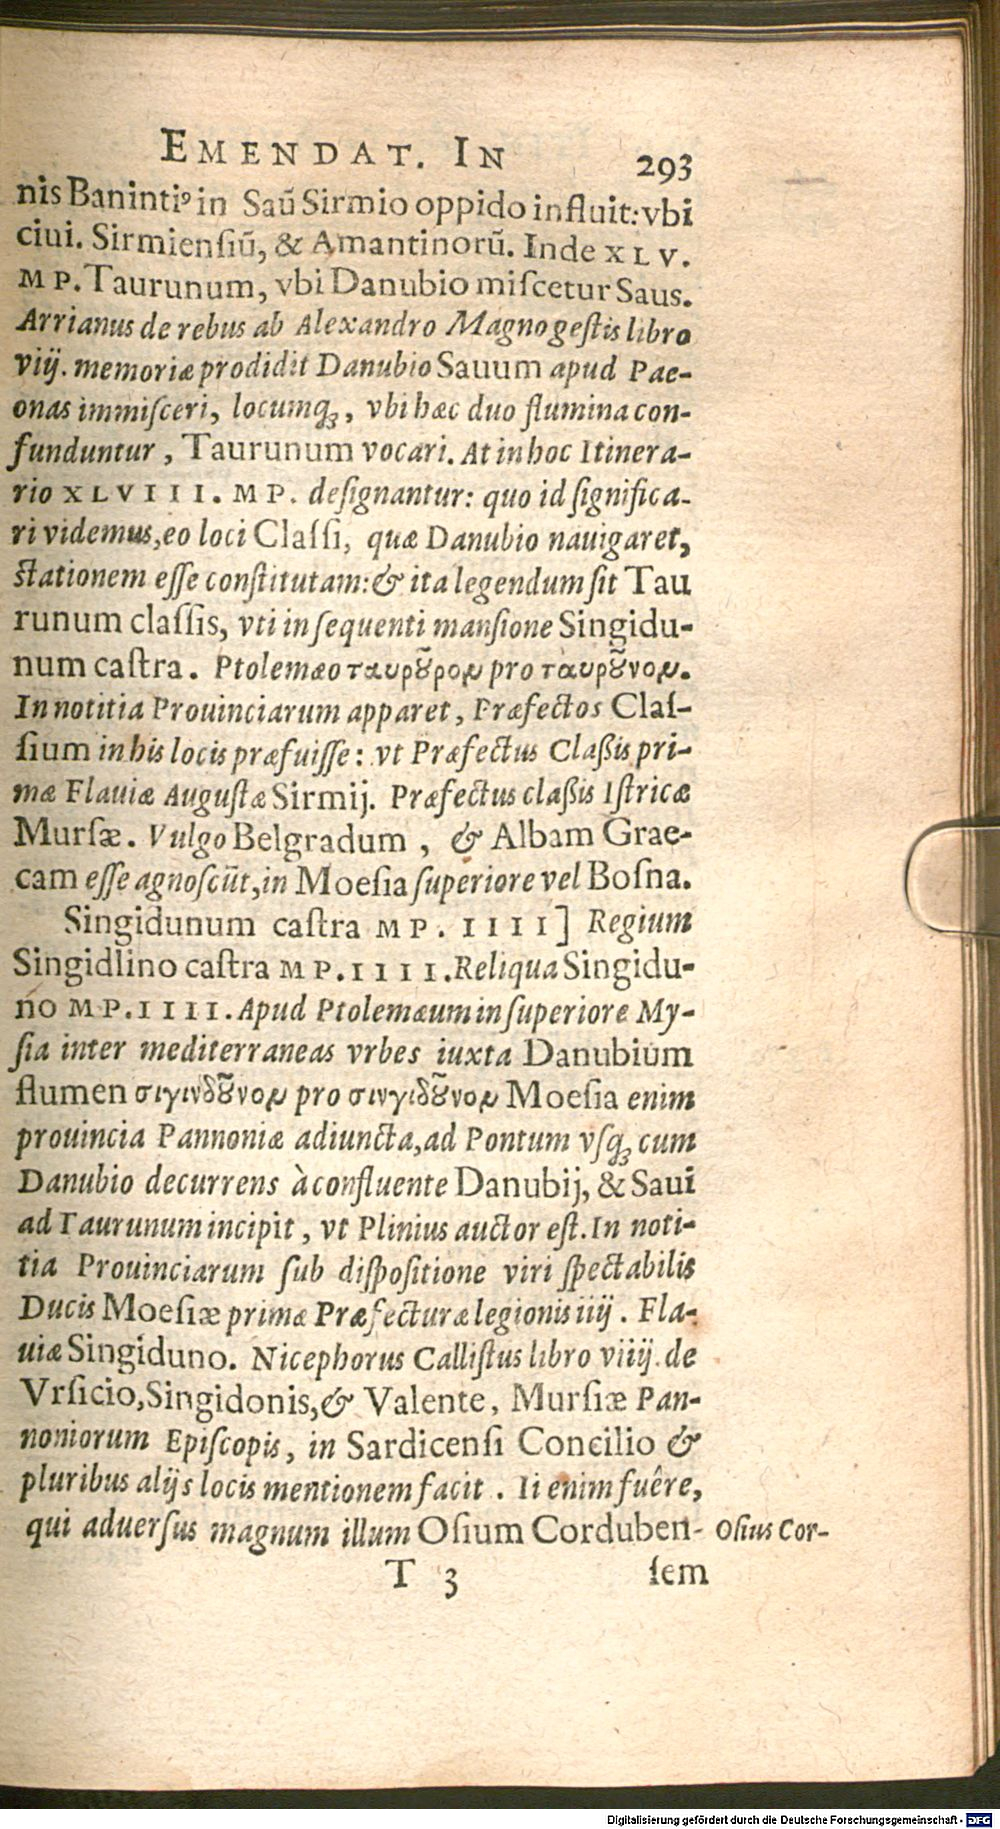 EMENDAT. IN 293
nis Banintiꝰ in Saũ Sirmio oppido influit: vbi
ciui. Sirmiensiũ, & Amantinorũ. Inde XLV.
MP. Taurunum, vbi Danubio miscetur Saus.
Arrianus de rebus ab Alexandro Magno gestis libro
viij. memoriæ prodidit Danubio Sauum apud Pae-
onas immisceri, locumq́ꝫ, vbi hæc duo flumina con-
funduntur, Taurunum vocari. At in hoc Itinera-
rio XLVIII. MP. designantur: quo id significa-
ri videmus, eo loci Classi, quæ Danubio nauigaret,
stationem esse constitutam: & ita legendum sit Tau
runum classis, vti in sequenti mansione Singidu-
num castra. Ptolemæo ταυροῦρον pro ταυροῦνον.
In notitia Prouinciarum apparet, Præfectos Clas-
sium in his locis præfuisse: vt Præfectus Claßis pri-
mæ Flauiæ Augustæ Sirmij. Præfectus claßis Istricæ
Mursæ. Vulgo Belgradum, & Albam Grae-
cam esse agnoscũt, in Moesia superiore vel Bosna.
Singidunum castra MP. IIII] Regium
Singidlino castra MP. IIII. Reliqua Singidu-
no MP. IIII. Apud Ptolemæum in superiore My-
sia inter mediterraneas vrbes iuxta Danubium
flumen σιγινδοῦνον pro σινγιδοῦνον Moesia enim
prouincia Pannoniæ adiuncta, ad Pontum vsq́ꝫ cum
Danubio decurrens à confluente Danubij, & Saui
ad Taurunum incipit, vt Plinius auctor est. In noti-
tia Prouinciarum sub dispositione viri spectabilis
Ducis Moesiæ primæ Præfecturæ legionis iiij. Fla-
uiæ Singiduno. Nicephorus Callistus libro viiij. de
Vrsicio, Singidonis, & Valente, Mursiæ Pan-
noniorum Episcopis, in Sardicensi Concilio &
pluribus alijs locis mentionem facit. Ii enim fuêre,
qui aduersus magnum illum Osium Corduben- Osius Cor-
T 3 sem
Digitalisierung gefördert durch die Deutsche Forschungsgemeinschaft - DFG